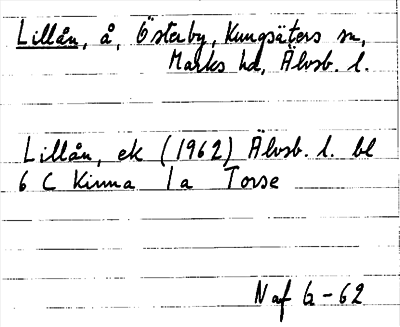 Lillån, å, Österby, Kungsäters sn,
Marks hd, Älvsb. l.
Lillån, ek (1962) Älvsb. l. bl
6 C Kinna 1a Torse
N af G-62